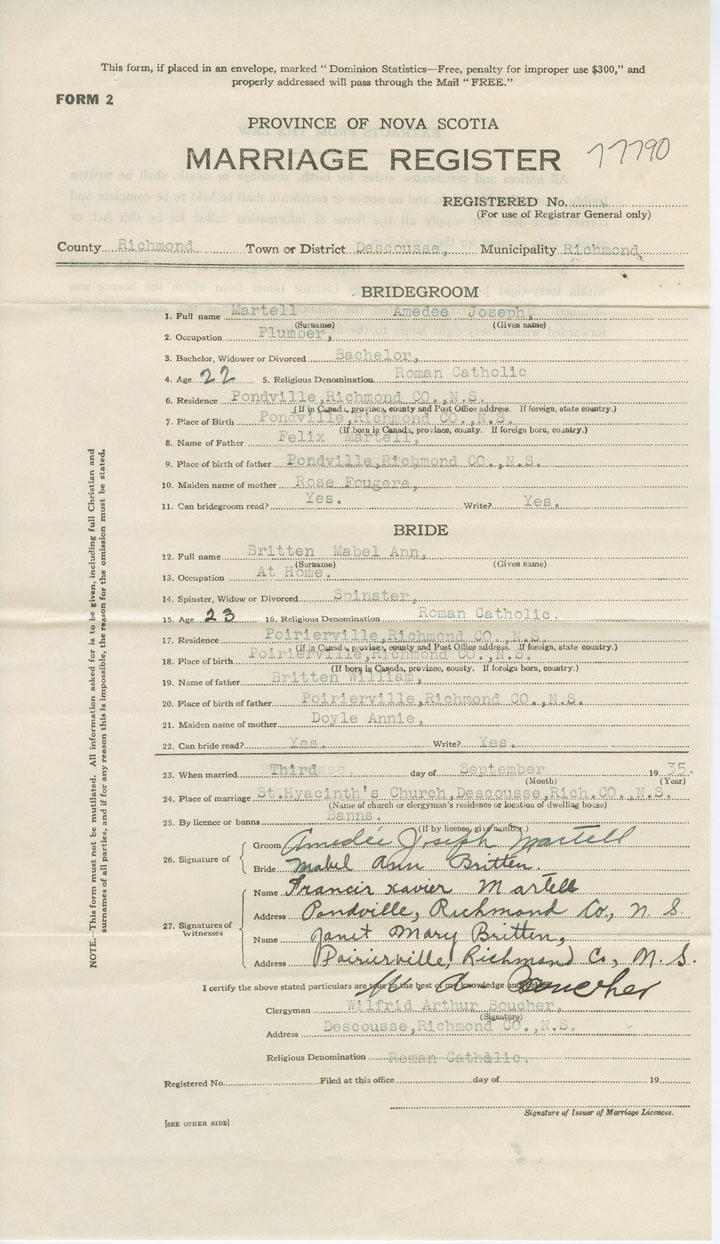 This form, if placed in an envelope, marked "Dominion Statistics—Free, penalty for improper use $300," and
properly addressed will pass through the Mail "FREE."
FORM 2
PROVINCE OF NOVA SCOTIA
MARRIAGE REGISTER 77790
REGISTERED No.
(For use of Registrar General only)
County Richmond Town or District Descousse, Municipality Richmond,
BRIDEGROOM
1. Full name Martell Amedee Joseph,
(Surname) (Given name)
2. Occupation Plumber,
3. Bachelor, Widower or Divorced Bachelor,
4. Age 22 5. Religious Denomination Roman Catholic
6. Residence Pondville, Richmond CO., N.S.
(If in Canada, province, county and Post Office address. If foreign, state country.)
7. Place of Birth Pondville, Richmond CO., N.S.
(If born in Canada, province, county. If foreign born, country.)
8. Name of Father Felix Martell,
9. Place of birth of father Pondville, Richmond CO., N.S.
10. Maiden name of mother Rose Fougere,
11. Can bridegroom read? Yes. Write? Yes.
BRIDE
12. Full name Britten Mabel Ann,
(Surname) (Given name)
13. Occupation At Home.
14. Spinster, Widow or Divorced Spinster,
15. Age 23 16. Religious Denomination Roman Catholic.
17. Residence Poirierville, Richmond CO., N.S.
(If in Canada, province, county and Post Office address. If foreign, state country.)
18. Place of birth Poirierville, Richmond CO., N.S.
(If born in Canada, province, county. If foreign born, country.)
19. Name of father Britten William,
20. Place of birth of father Poirierville, Richmond CO., N.S.
21. Maiden name of mother Doyle Annie,
22. Can bride read? Yes. Write? Yes.
23. When married Third day of September 19 35.
(Month) (Year)
24. Place of marriage St. Hyacinth's Church, Descousse, Rich. CO., N.S.
(Name of church or clergyman's residence or location of dwelling house)
25. By licence or banns Banns.
(If by licence, give number.)
26. Signature of
Groom Amedée Joseph Martell
Bride Mabel Ann Britten.
27. Signatures of Witnesses
Name Francis Xavier Martell
Address Pondville, Richmond Co., N. S.
Name Janet Mary Britten,
Address Poirierville, Richmond Co., N. S.
I certify the above stated particulars are true to the best of my knowledge and
W. A. Boucher
Clergyman Wilfrid Arthur Boucher,
(Signature)
Address Descousse, Richmond CO., N.S.
Religious Denomination Roman Catholic.
Registered No. Filed at this office day of 19
Signature of Issuer of Marriage Licences.
[SEE OTHER SIDE]
NOTE.—This form must not be mutilated. All information asked for is to be given, including full Christian and
surnames of all parties, and if for any reason this is impossible, the reason for the omission must be stated.